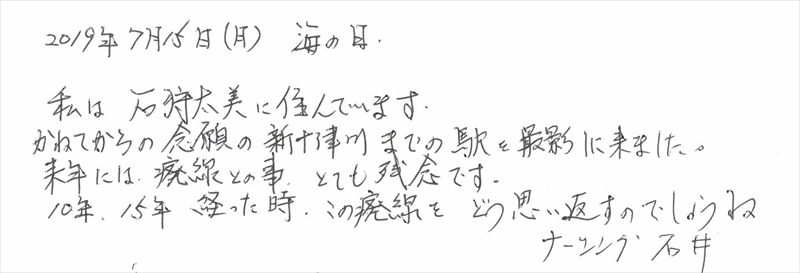 2019年7月15日(月) 海の日.
私は 石狩太美に住んでいます.
かねてからの念願の新十津川までの駅を撮影に来ました。
来年には廃線との事、とても残念です.
10年、15年 経った時、この廃線を どう思い返すのでしょうね
ナーシング 石井